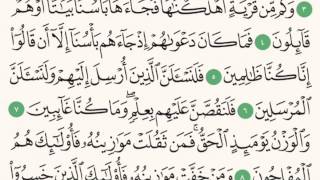 ٣ وَكَم مِّن قَرْيَةٍ أَهْلَكْنَٰهَا فَجَآءَهَا بَأْسُنَا بَيَٰتًا أَوْ هُمْ
قَآئِلُونَ ٤ فَمَا كَانَ دَعْوَىٰهُمْ إِذْ جَآءَهُم بَأْسُنَآ إِلَّآ أَن قَالُوٓا۟
إِنَّا كُنَّا ظَٰلِمِينَ ٥ فَلَنَسْـَٔلَنَّ ٱلَّذِينَ أُرْسِلَ إِلَيْهِمْ وَلَنَسْـَٔلَنَّ
ٱلْمُرْسَلِينَ ٦ فَلَنَقُصَّنَّ عَلَيْهِم بِعِلْمٍ ۖ وَمَا كُنَّا غَآئِبِينَ ٧
وَٱلْوَزْنُ يَوْمَئِذٍ ٱلْحَقُّ ۚ فَمَن ثَقُلَتْ مَوَٰزِينُهُۥ فَأُو۟لَٰٓئِكَ هُمُ
ٱلْمُفْلِحُونَ ٨ وَمَنْ خَفَّتْ مَوَٰزِينُهُۥ فَأُو۟لَٰٓئِكَ ٱلَّذِينَ خَسِرُوٓا۟